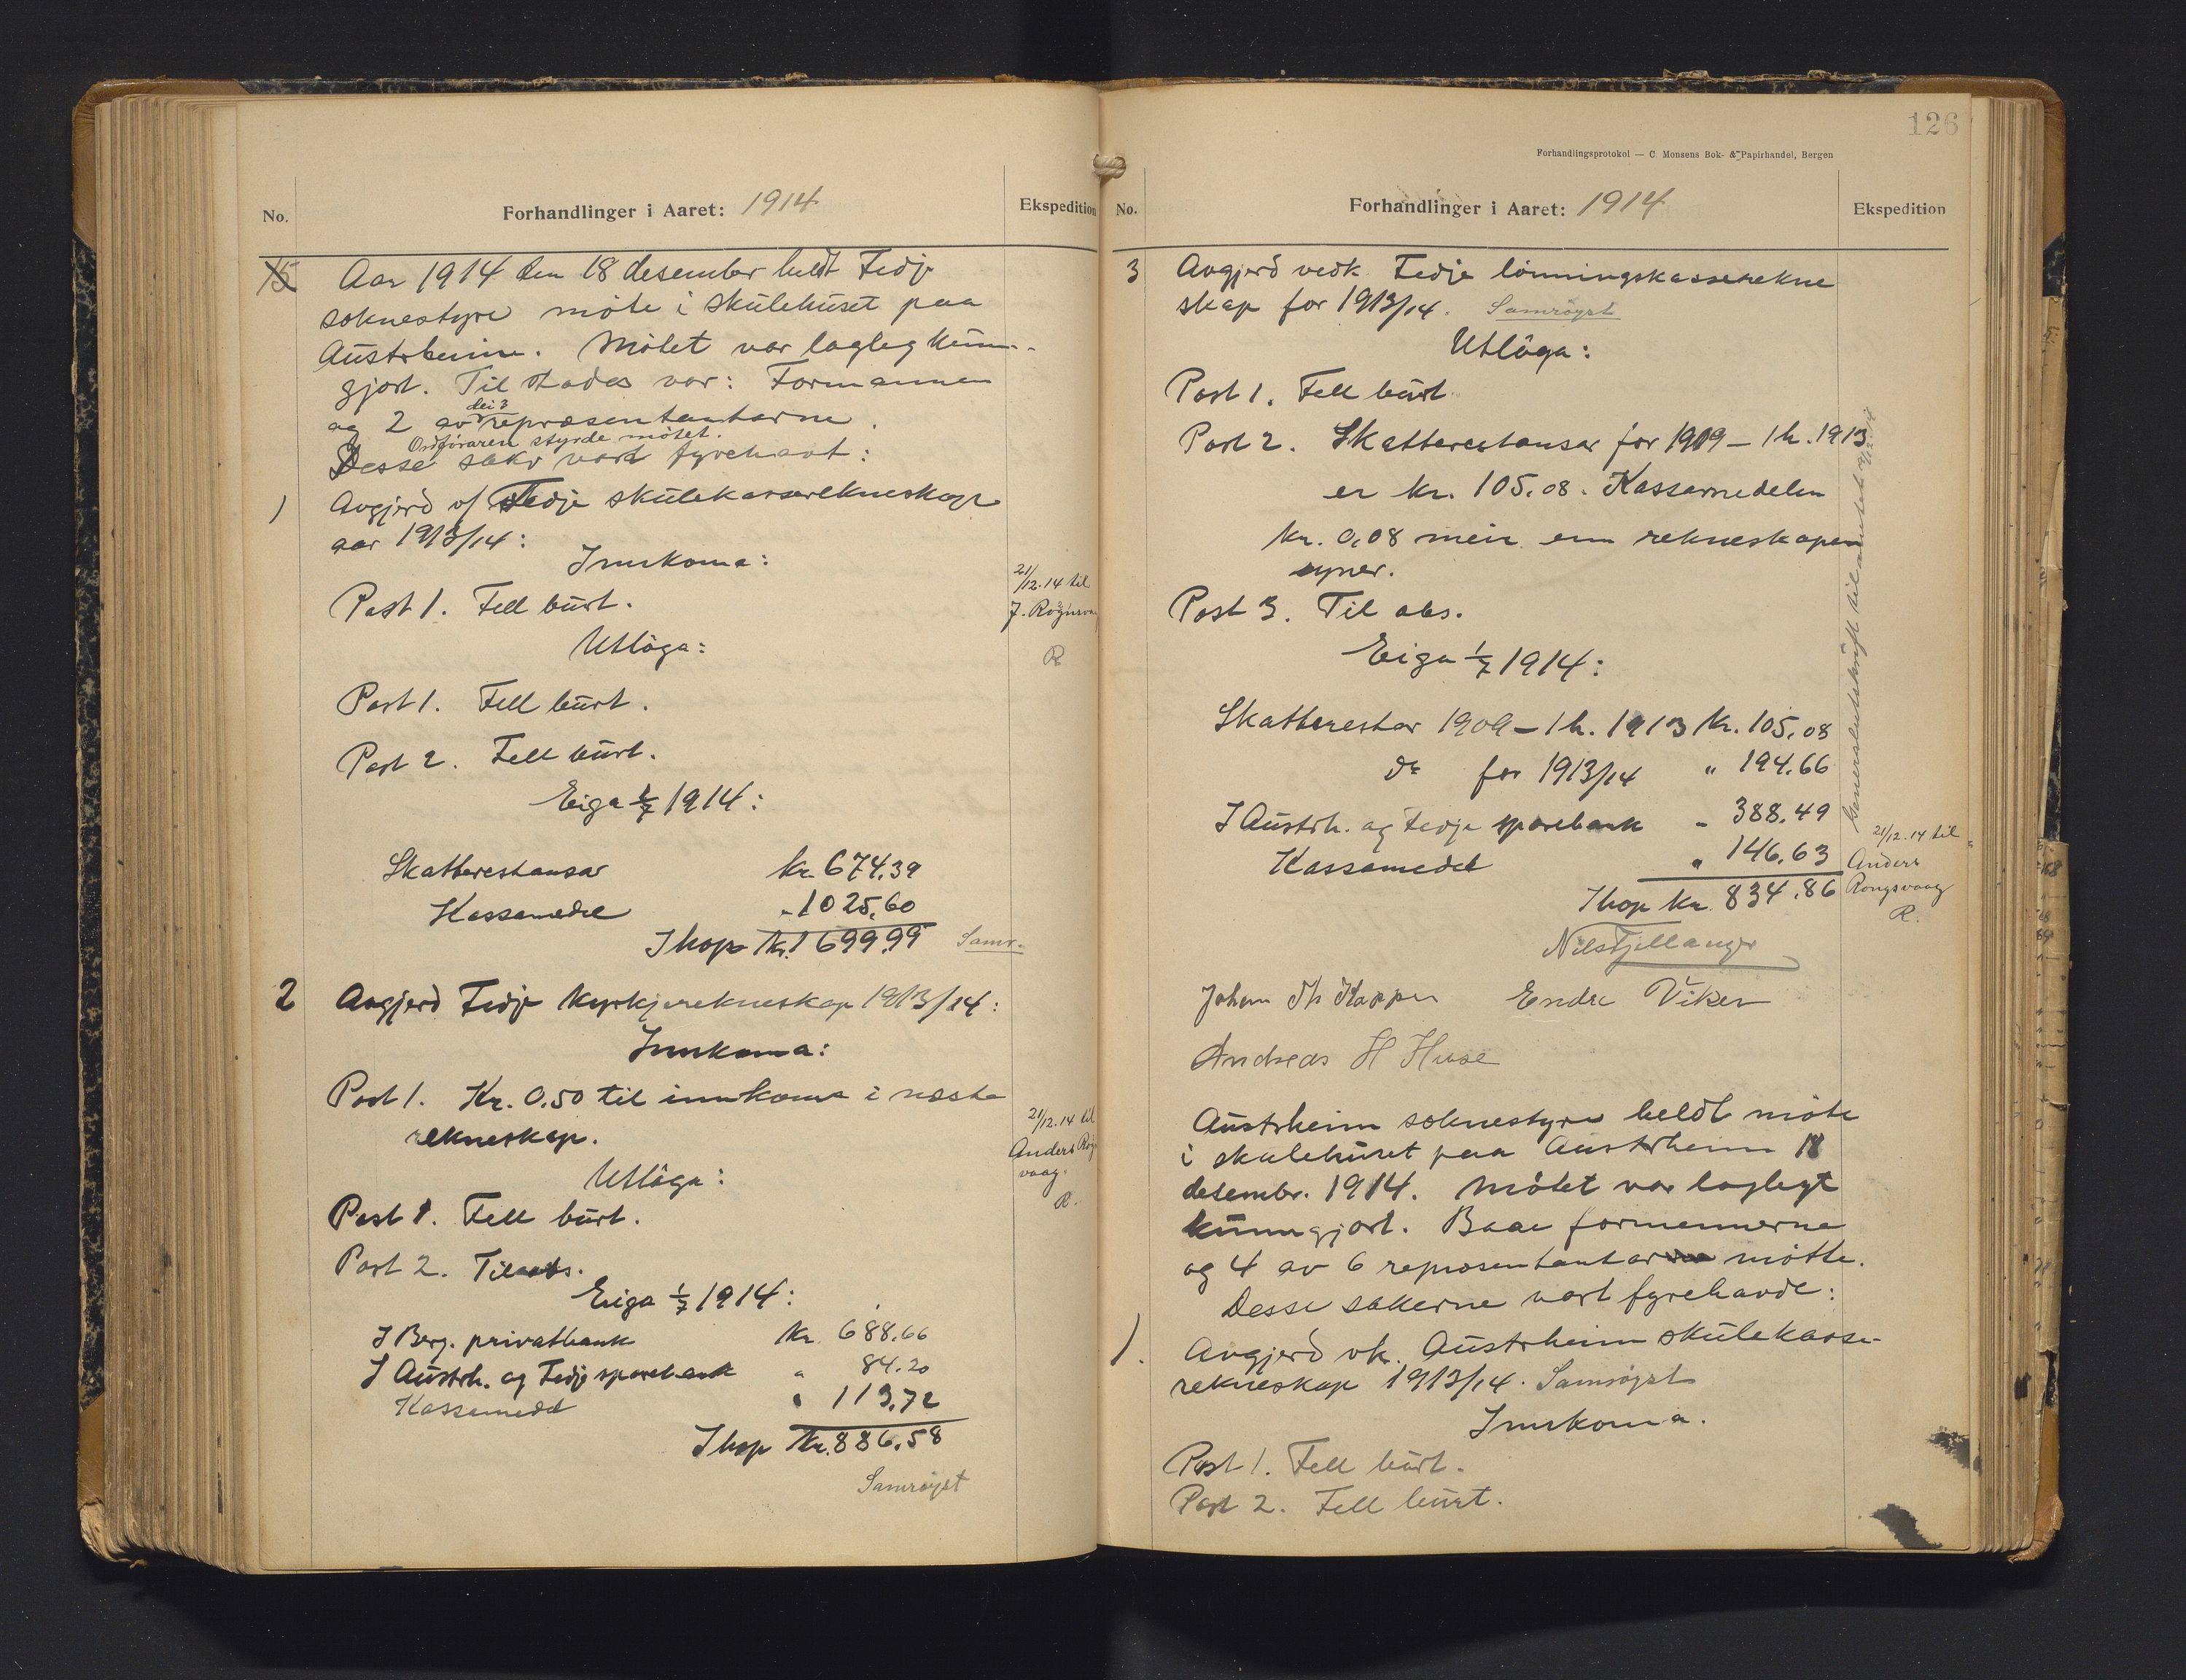 No.
Forhandlinger i Aaret: 1914
Ekspedition
15
Aar 1914 den 18 desember heldt Fedje
soknestyre møte i skulehuset paa
Austrheim. Møtet var lagleg kunn-
gjort. Til stades var: Formannen
og 2 av dei 3 repræsentantarne.
Ordføraren styrde møtet.
Desse saker vart fyrehavt:
1
Avgjerd v/ Fedje skulekasserekneskap
aar 1913/14:
Innkoma:
Post 1. Fell burt.
21/12.14 til
J. Rognsvaag
R
Utlòga:
Post 1. Fell burt.
Post 2. Fell burt.
Eiga 1/7 1914:
Skatterestansar kr. 674,39
Kassamedel " 1025,60
Ihop kr. 1699,99 Samr.
2
Avgjerd Fedje kyrkjerekneskap 1913/14:
Innkoma:
Post 1. Kr. 0.50 til innkoma i næste
rekneskap.
21/12.14 til
Anders
vaag.
R.
Utlòga:
Post 1. Fell burt.
Post 2. Til obs.
Eiga 1/7 1914:
I Berg. privatbank kr. 688,66
I Austrh. og Fedje sparebank " 84.20
Kassamedel " 113,72
Ihop kr. 886,58
Samrøyst
126
Forhandlingsprotokol — C. Monsens Bok- & Papirhandel, Bergen
No.
Forhandlinger i Aaret: 1914
Ekspedition
3
Avgjerd vedk. Fedje lønningskasserekne
skap for 1913/14. Samrøyst
Utlòga:
Post 1. Fell burt
Post 2. Skatterestansar for 1909 – 1 h. 1913
er kr. 105,08. Kassamedelen
kr. 0,08 meir enn rekneskapen
syner.
Post 3. Til obs.
Eiga 1/7 1914:
Skatterestar 1909 – 1 h. 1913 kr. 105,08
do for 1913/14 " 194,66
I Austrh. og Fedje sparebank " 388,49
Kassamedel " 146,63
Ihop kr. 834,86
21/12.14 til
Anders
Rongsvaag
R.
Nils Fjellanger
Johan Endre Viken
Andreas H Huse
Austrheim soknestyre heldt møte
i skulehuset paa Austrheim 18
desembr. 1914. Møtet var loglegt
kunngjort. Baae formennerne
og 4 av 6 representantar møtte.
Desse sakerne vart fyrehavde:
1.
Avgjerd vk. Austrheim skulekasse-
rekneskap 1913/14. Samrøyst
Innkoma.
Post 1. Fell burt.
Post 2. Fell burt.